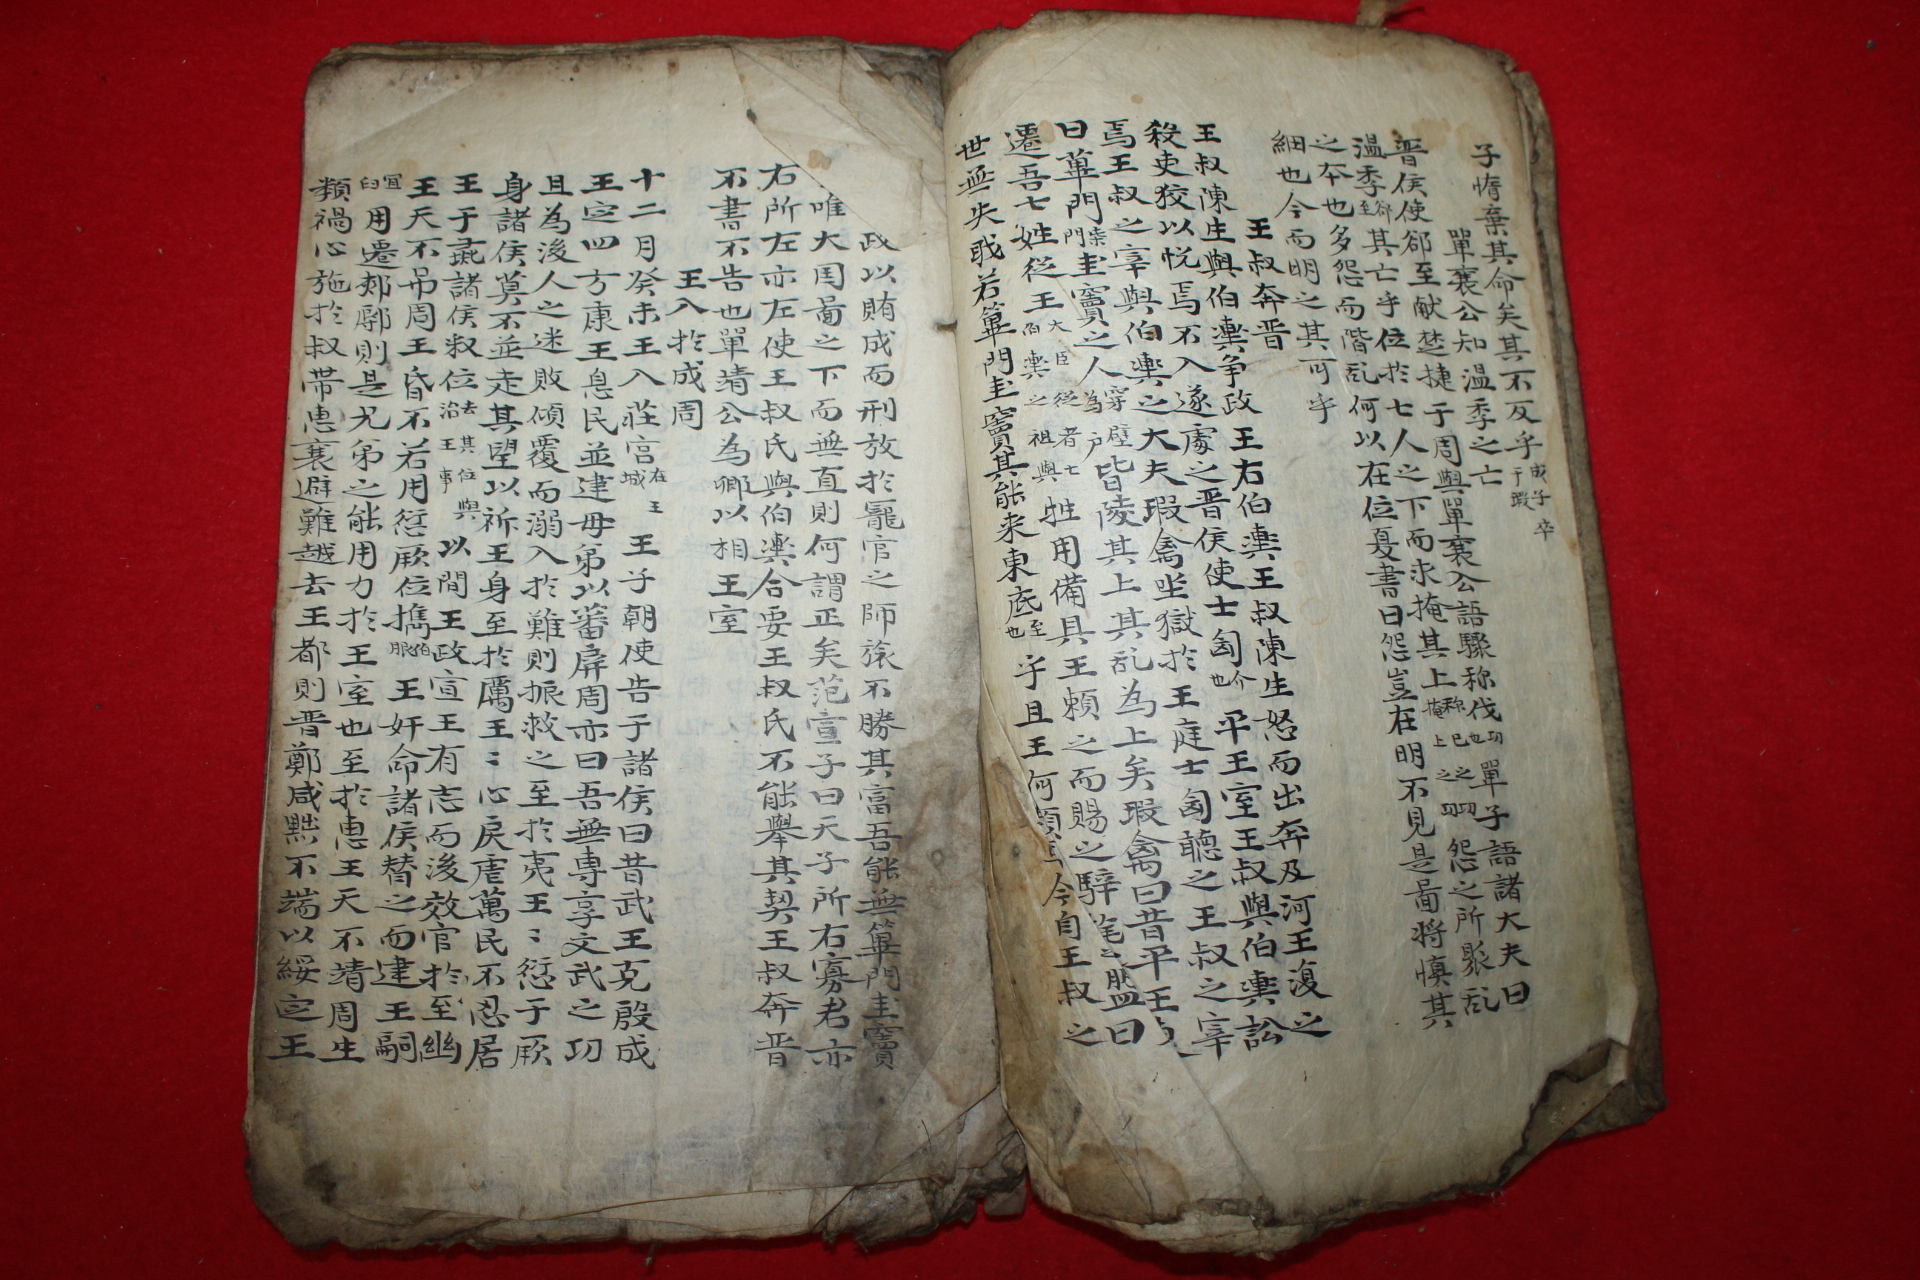 子惰棄其命矣其不反乎成子卒于瑕
單襄公知温季之亡
晋侯使郤至献楚捷于周與單襄公語驟称伐功也單子語諸大夫曰
温季郤至其亡乎位於七人之下而求掩其上称己之功掩上之功怨之所聚乱
之夲也多怨而階乱何以在位夏書曰怨豈在明不見是啚将慎其
細也今而明之其可乎
王叔奔晋
王叔陳生與伯輿争政王右伯輿王叔陳生怒而出奔及河王復之
殺吏狡以悅焉不入遂處之晋侯使士匄介也平王室王叔與伯輿訟
焉王叔之宰與伯輿之大夫瑕禽坐獄於王庭士匄聽之王叔之宰
曰蓽門柴門圭竇之人穿壁為户皆陵其上其乱為上矣瑕禽曰昔平王
遷吾七姓從王大臣從者七伯輿之祖與牲用備具王頼之而賜之騂旄之盟曰
世無失戝若蓽門圭竇其能来東底至也乎且王何頼焉今自王叔之
政以賄成而刑放於寵官之師旅不勝其富吾能無蓽門圭竇
唯大囯啚之下而無直則何謂正矣范宣子曰天子所右寡君亦
右所左亦左使王叔氏與伯輿合要王叔氏不能擧其契王叔奔晋
不書不告也單靖公為卿以相王室
王入於成周
十二月癸未王入莊宮在王城王子朝使告于諸侯曰昔武王克殷成
王定四方康王息民並建母弟以蕃屏周亦曰吾無専享文武之功
且為後人之迷敗傾覆而溺入於難則振救之至於夷王〻愆于厥
身諸侯莫不並走其望以祈王身至於厲王〻心戾虐萬民不忍居
王于彘諸侯釈位去其位與治王事以間王政宣王有志而後效官於至幽
王天不吊周王昏不若用愆厥位攜伯服王奸命諸侯替之而建王嗣
宜臼用遷郟鄏則是兄弟之能用力於王室也至於惠王天不靖周生
頽禍心施於叔帯惠襄避難越去王都則晋鄭咸黜不端以綏定王